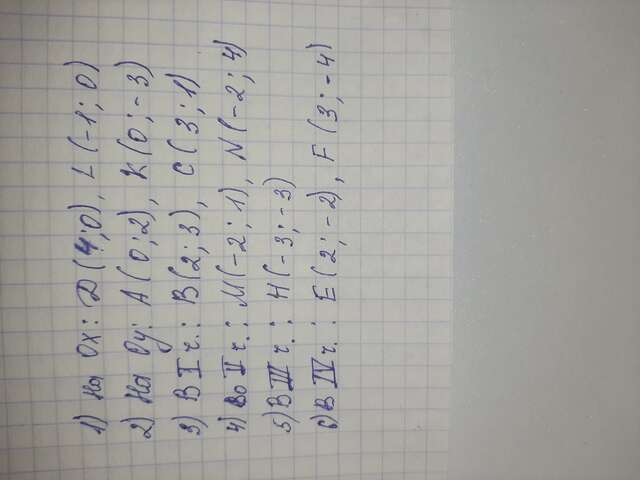 1) На Ох: D(4;0), L(-1;0)
2) На Оу: А(0;2), К(0;-3)
3) В I ч.: В(2;3), С(3;1)
4) Во II ч.: М(-2;1), N(-2;4)
5) В III ч.: Н(-3;-3)
6) В IV ч.: Е(2;-2), F(3;-4)